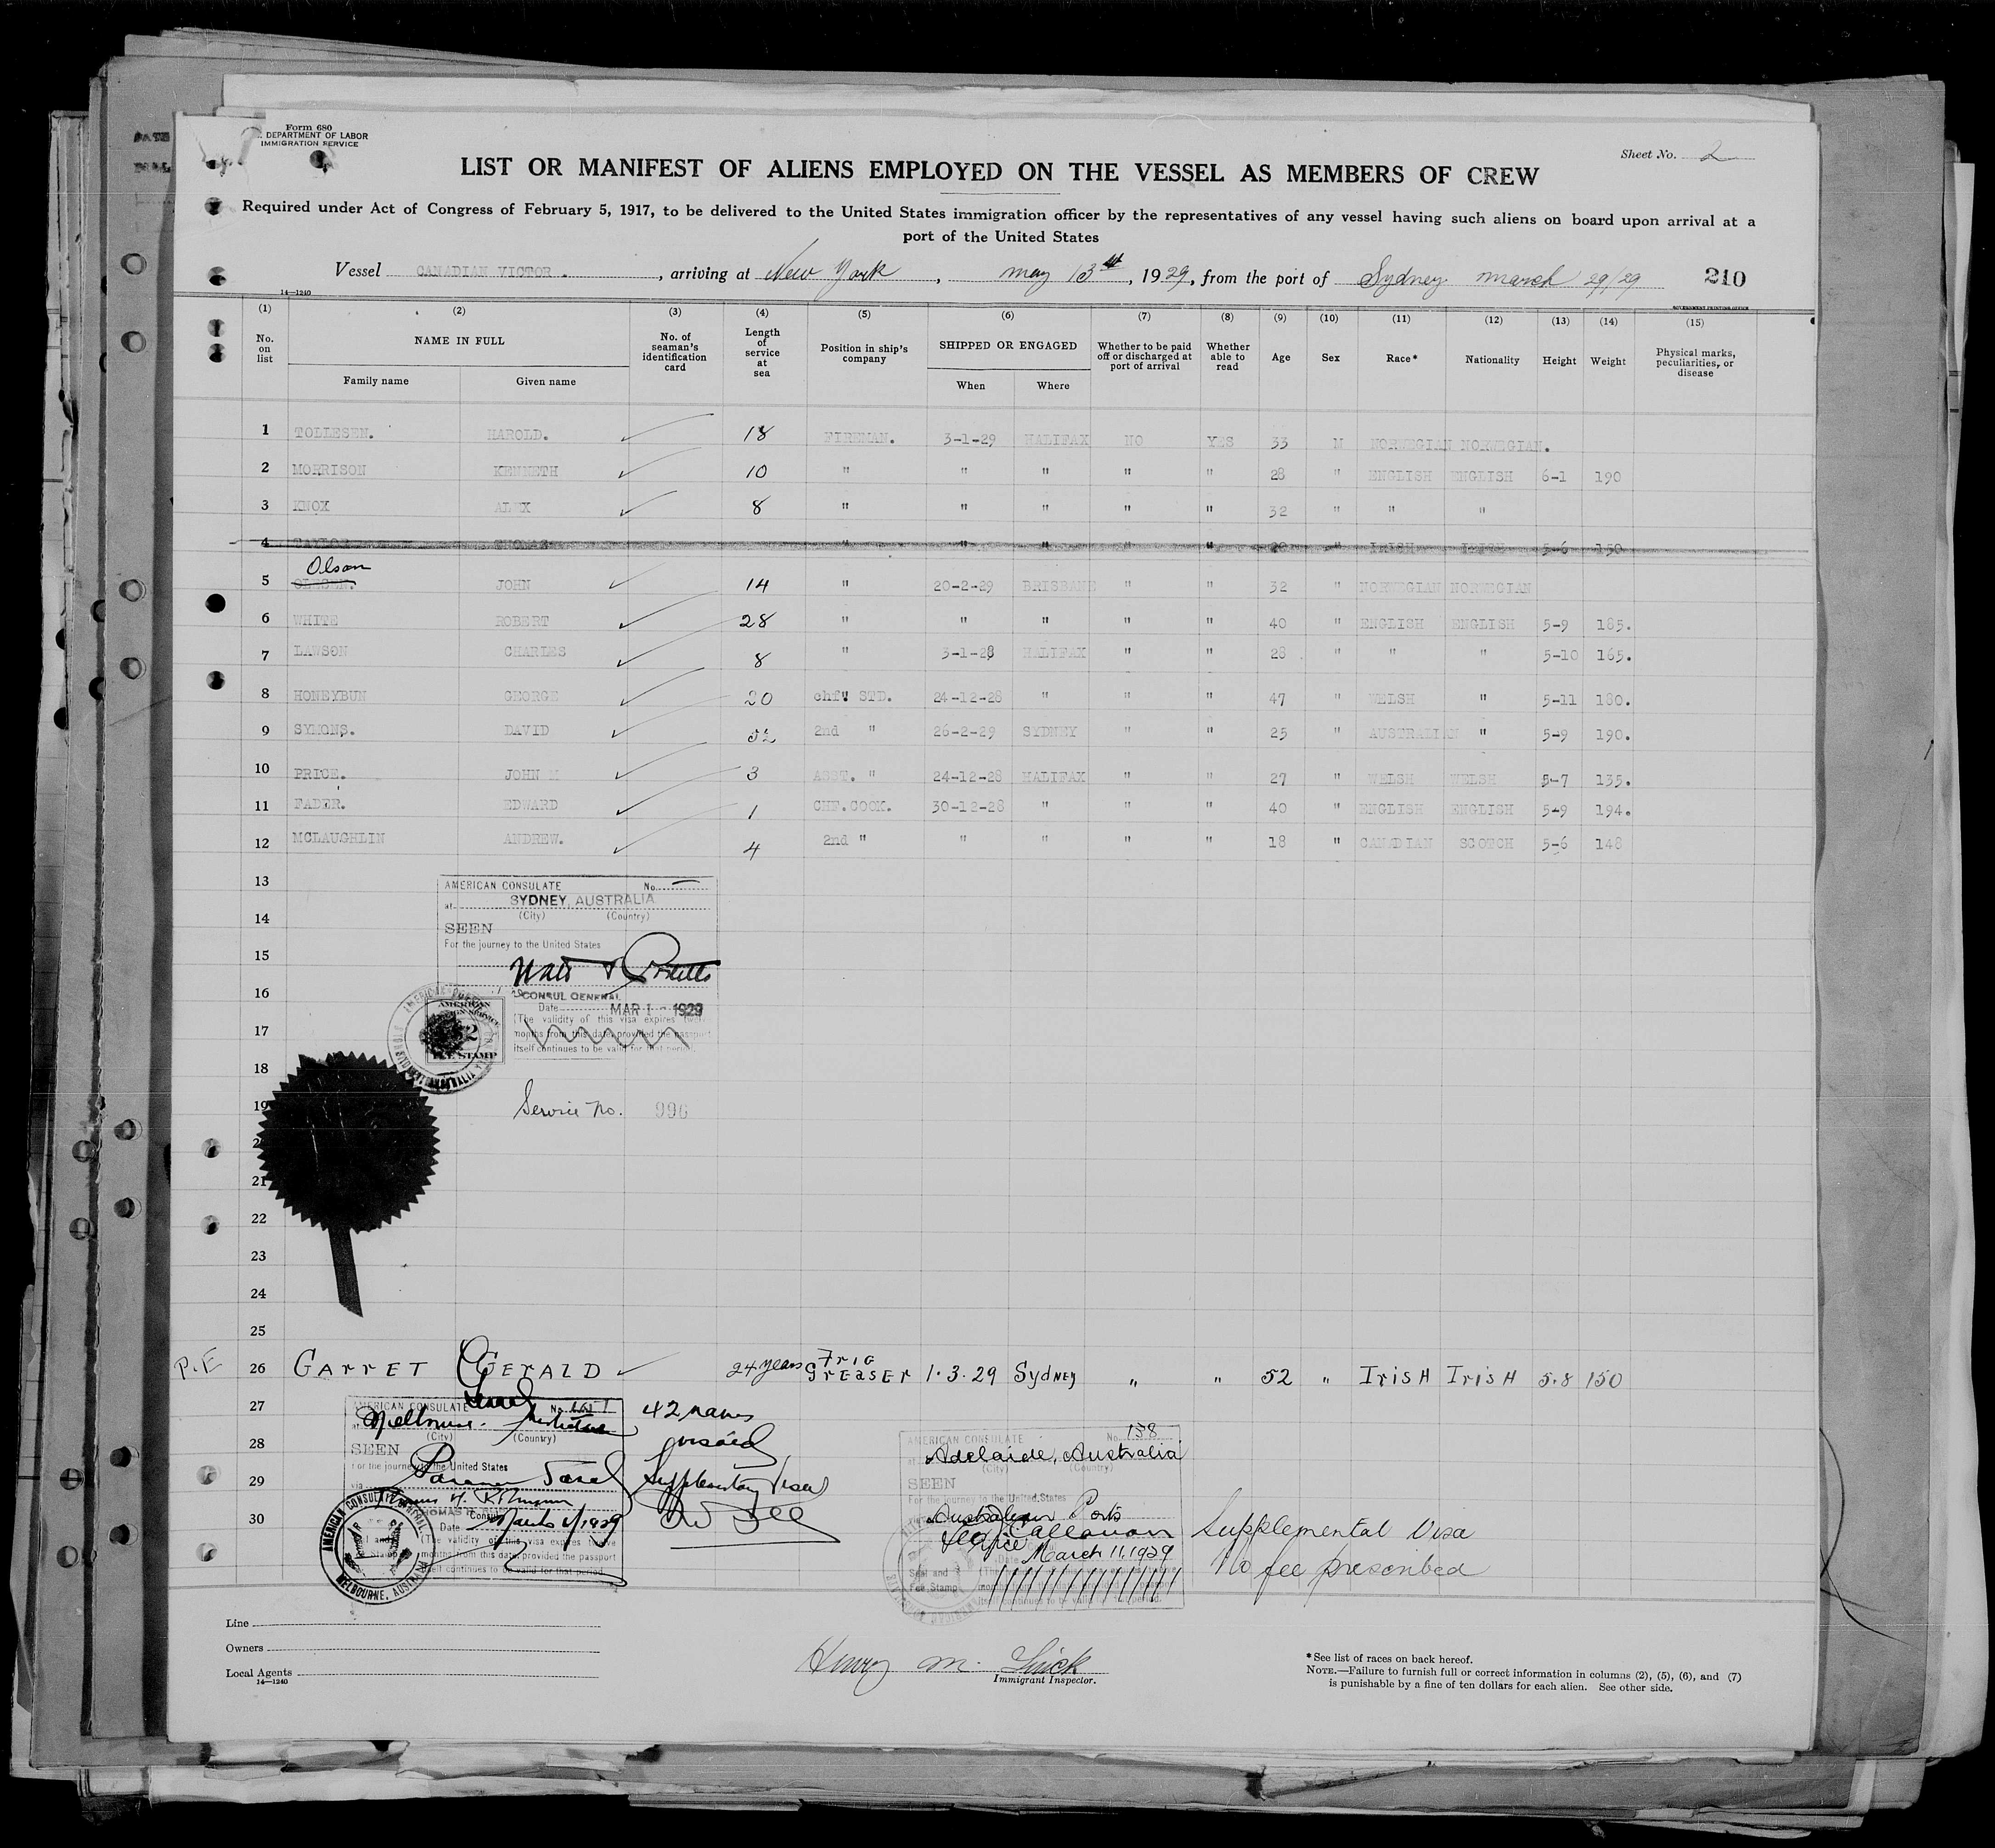 Form 680
DEPARTMENT OF LABOR
IMMIGRATION SERVICE
Sheet No. 2
LIST OR MANIFEST OF ALIENS EMPLOYED ON THE VESSEL AS MEMBERS OF CREW
Required under Act of Congress of February 5, 1917, to be delivered to the United States immigration officer by the representatives of any vessel having such aliens on board upon arrival at a
port of the United States
Vessel CANADIAN VICTOR. , arriving at New York , may 13th , 1929, from the port of Sydney march 29/29 210
14—1240
GOVERNMENT PRINTING OFFICE
(1) (2) (3) (4) (5) (6) (7) (8) (9) (10) (11) (12) (13) (14) (15)
No. on list NAME IN FULL Family name Given name No. of seaman's identification card Length of service at sea Position in ship's company SHIPPED OR ENGAGED When Where Whether to be paid off or discharged at port of arrival Whether able to read Age Sex Race* Nationality Height Weight Physical marks, peculiarities, or disease
1 TOLLESEN. HAROLD. 18 FIREMAN. 3-1-29 HALIFAX NO YES 33 M NORWEGIAN NORWEGIAN.
2 MORRISON KENNETH 10 " " " " " 28 " ENGLISH ENGLISH 6-1 190
3 KNOX ALEX 8 " " " " " 32 " " "
4 TAYLOR THOMAS " " " " " 29 " IRISH IRISH 5-6 150
Olson
5 OLESEN. JOHN 14 " 20-2-29 BRISBANE " " 32 " NORWEGIAN NORWEGIAN
6 WHITE ROBERT 28 " " " " " 40 " ENGLISH ENGLISH 5-9 185.
7 LAWSON CHARLES 8 " 3-1-28 HALIFAX " " 28 " " " 5-10 165.
8 HONEYBUN GEORGE 20 chf. STD. 24-12-28 " " " 47 " WELSH " 5-11 180.
9 SYMONS. DAVID 5½ 2nd " 26-2-29 SYDNEY " " 25 " AUSTRALIAN " 5-9 190.
10 PRICE. JOHN M 3 ASST. " 24-12-28 HALIFAX " " 27 " WELSH WELSH 5-7 135.
11 FADER. EDWARD 1 CHF.COOK. 30-12-28 " " " 40 " ENGLISH ENGLISH 5-9 194.
12 MCLAUGHLIN ANDREW. 4 2nd " " " " " 18 " CANADIAN SCOTCH 5-6 148
13
AMERICAN CONSULATE No.
at SYDNEY, AUSTRALIA
(City) (Country)
14
SEEN
For the journey to the United States
15
16
CONSUL GENERAL
AMERICAN
Date MAR 1 1929
17
(The validity of this visa expires
months from this date, provided the passport
itself continues to be valid for that period.
FEE STAMP
18
19
Service No. 996
21
22
23
24
25
P.E 26 GARRET GERALD 24 years Frig GREASER 1.3.29 Sydney " " 52 " IRISH IRISH 5.8 150
27
AMERICAN CONSULATE No.
42 names
Melbourne.
(City) (Country)
28
SEEN
visaed
For the journey to the United States
29
Supplementary Visa
30
Consul
Date March 4/1929
(The validity of this visa expires
months from this date, provided the passport
itself continues to be valid for that period
AMERICAN CONSULATE GENERAL
MELBOURNE, AUSTRALIA
AMERICAN CONSULATE No. 158
at Adelaide, Australia
(City) (Country)
SEEN
For the journey to the United States
Australian Ports
Callanan
Vice Consul
Date March 11, 1929
Seal and
Fee Stamp
itself continues to be valid for that period.
Supplemental Visa
No fee prescribed
Line
Owners
Local Agents
14—1240
Henry M.
Immigrant Inspector.
*See list of races on back hereof.
NOTE.—Failure to furnish full or correct information in columns (2), (5), (6), and (7)
is punishable by a fine of ten dollars for each alien. See other side.